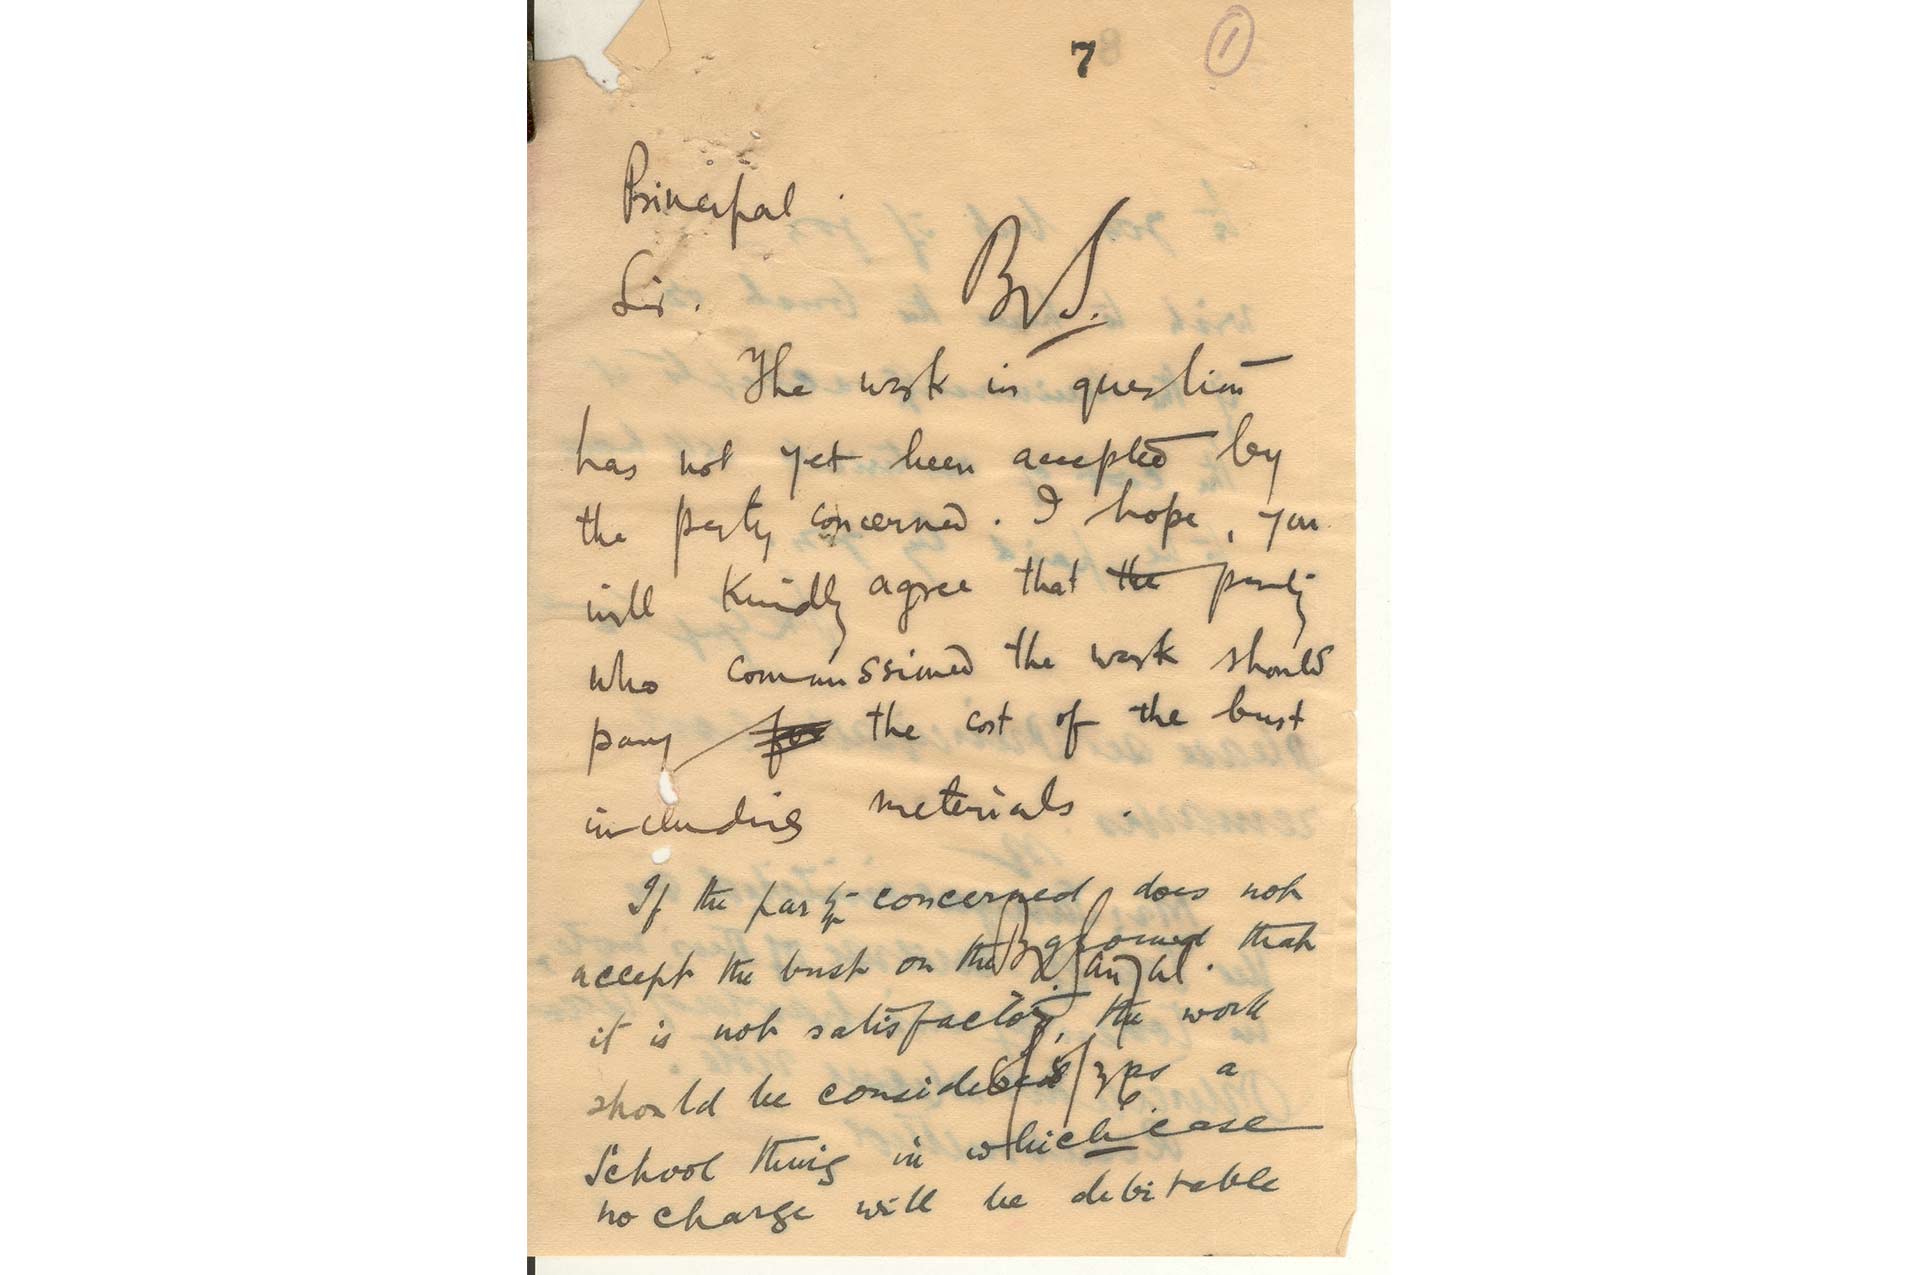 7
1
Principal
Sir.
B S.
The work in question
has not yet been accepted by
the party concerned. I hope, you
will kindly agree that the party
who commissioned the work should
pay for the cost of the bust
including materials.
If the party concerned does not
accept the bust on the ground that
it is not satisfactory, the work
should be considered as a
School thing in which case
no charge will be debitable